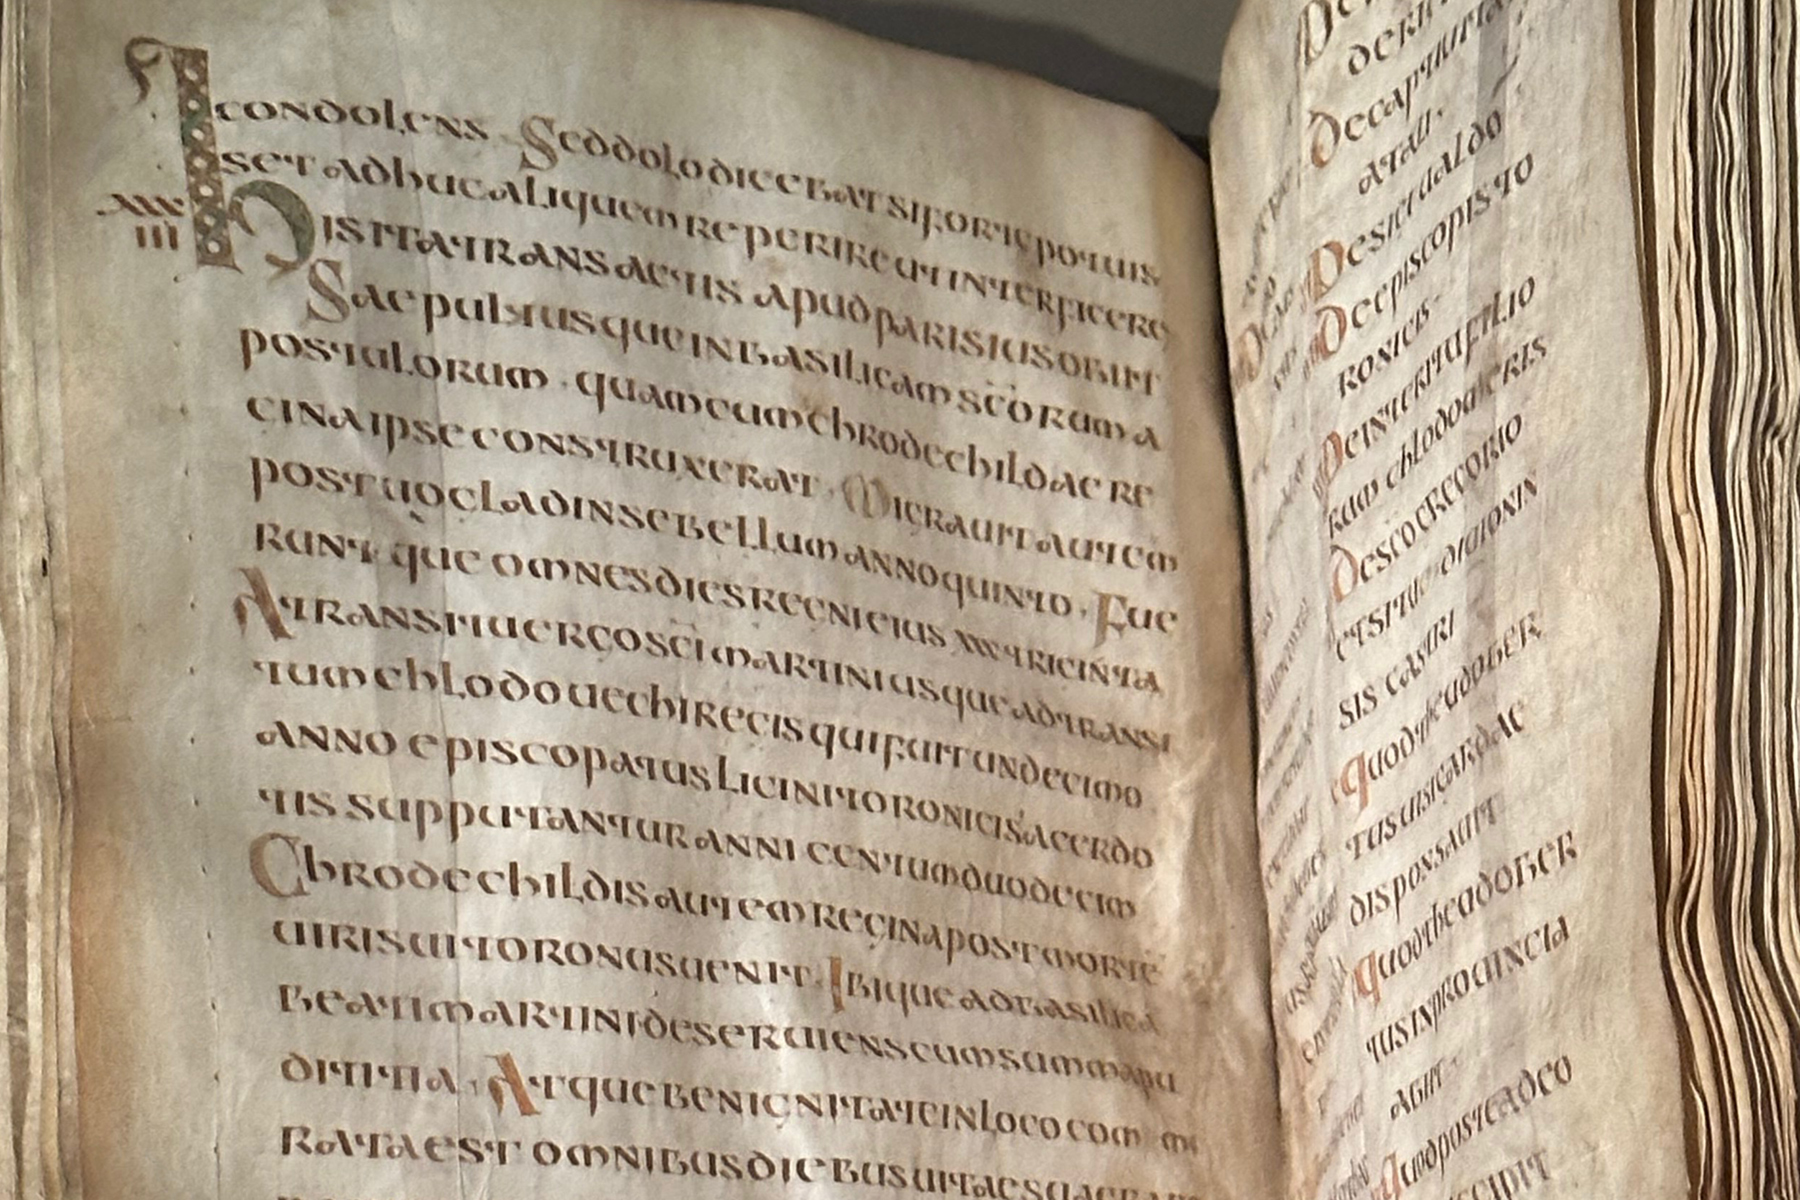 condolens · Seddolodicebatsiforte potuis
set adhuc aliquem reperire ut interficere
xxx
iiii
Hisitatransactis apudparisiusobiit
Saepultusque in basilicam scorum a
postulorum · quam cum chrodechildae re
cina ipse construxerat · Micrauit autem
post uocladinse bellum anno quinto · Fue
runt que omnes dies regni eius xxx tricinta
Atransitu erco sci martini usque ad transi
tum chlodouechi recis qui fuit undecimo
anno episcopatus licini toronici sacerdo
tis supputantur anni centum duodecim
Chrodechildis autem recina post morte
uiri sui toronus uenit · Ibique ad basilica
beati martini deseruiens cum summa pu
ditia · Atque benignitate in loco com mo
rata est omnibus diebus uitae suae
De captiuita
atali ·
De siciualdo
De episcopis to
ronicis ·
De interitu filio
rum chlodomeris
De sco crecorio
et situ diuionin
sis castri
quod theudober
tus uisicardae
disponsauit
quod theudober
tus in prouincia
abiit ·
quod postea deo